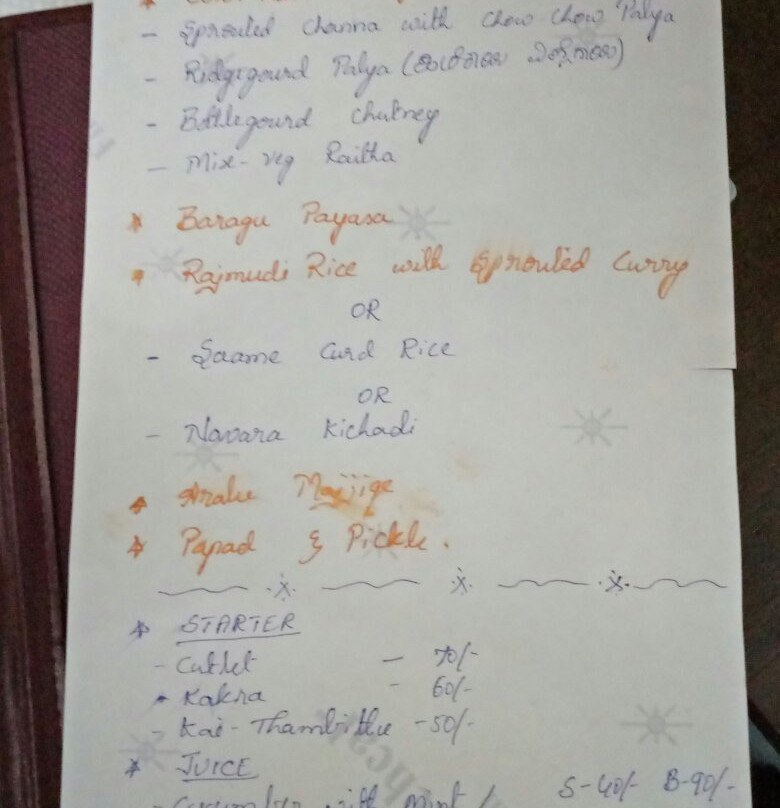 - Sprouted Channa with Chow-Chow Palya
- Ridgegourd Palya (
- Bottlegourd Chutney
- Mix-veg Raitha
* Baragu Payasa
* Rajmudi Rice with Sprouted Curry
OR
- Saame Curd Rice
OR
- Navara Kichadi
* Aralu Majjige
* Papad & Pickle.
* STARTER
- Cutlet - 70/-
- Kakra - 60/-
- Kai-Thambittu - 50/-
* JUICE
- Cucumber with mint / S-40/- B-90/-